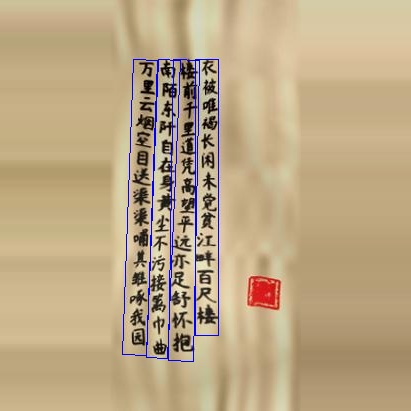 衣被唯褐长闲未觉贫江畔百尺楼
楼前千里道凭高望平远亦足舒怀抱
南陌东阡自在身黄尘不污接篱巾曲
万里云烟空目送渠渠哺其雏啄我园